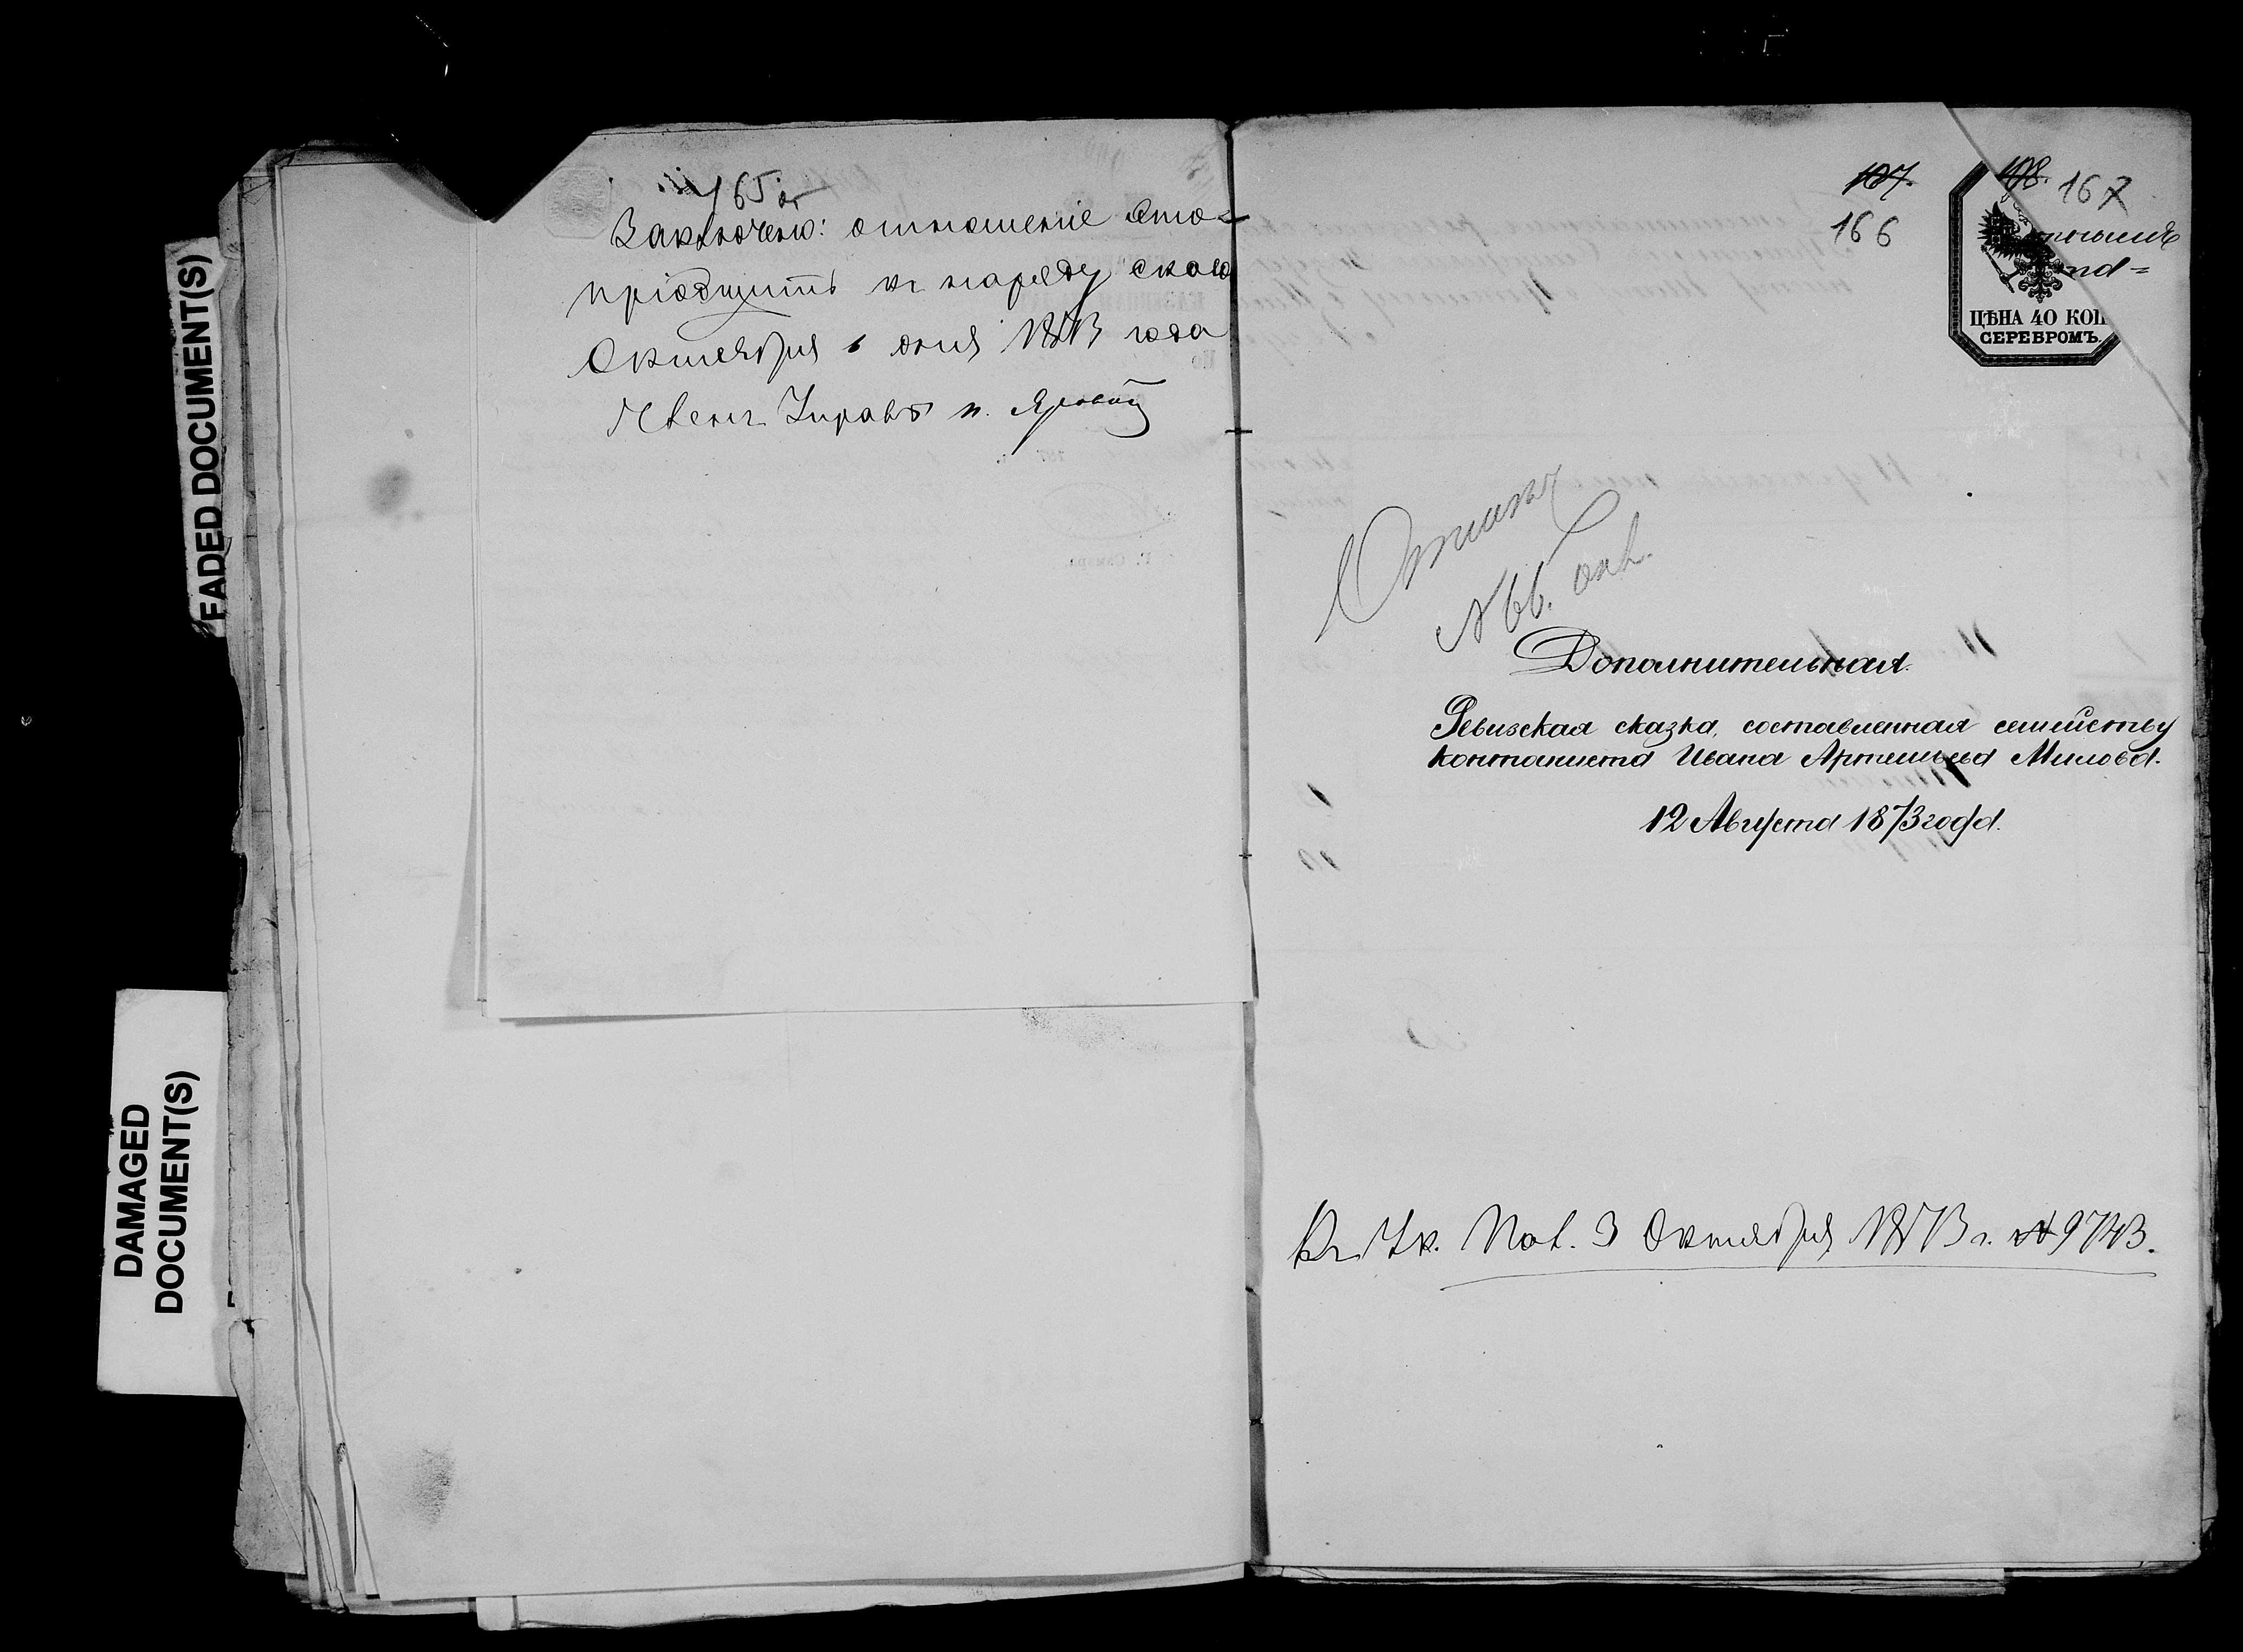 FADED DOCUMENT(S)
DAMAGED
DOCUMENT(S)
165 об
Заключено: отношеніе это
пріобщить къ наряду сказ
Октября 6 дня 1873 года
Членъ Управы
107.
166
108. 167
ЦѢНА 40 КОП
СЕРЕБРОМЪ.
Дополнительная.
Ревизская сказка, составленная семейству
контониста Ивана Артемьева Милова.
12 Августа 1873 года.
Къ Ук. Пол. 3 Октября 1873 г. № 9743.